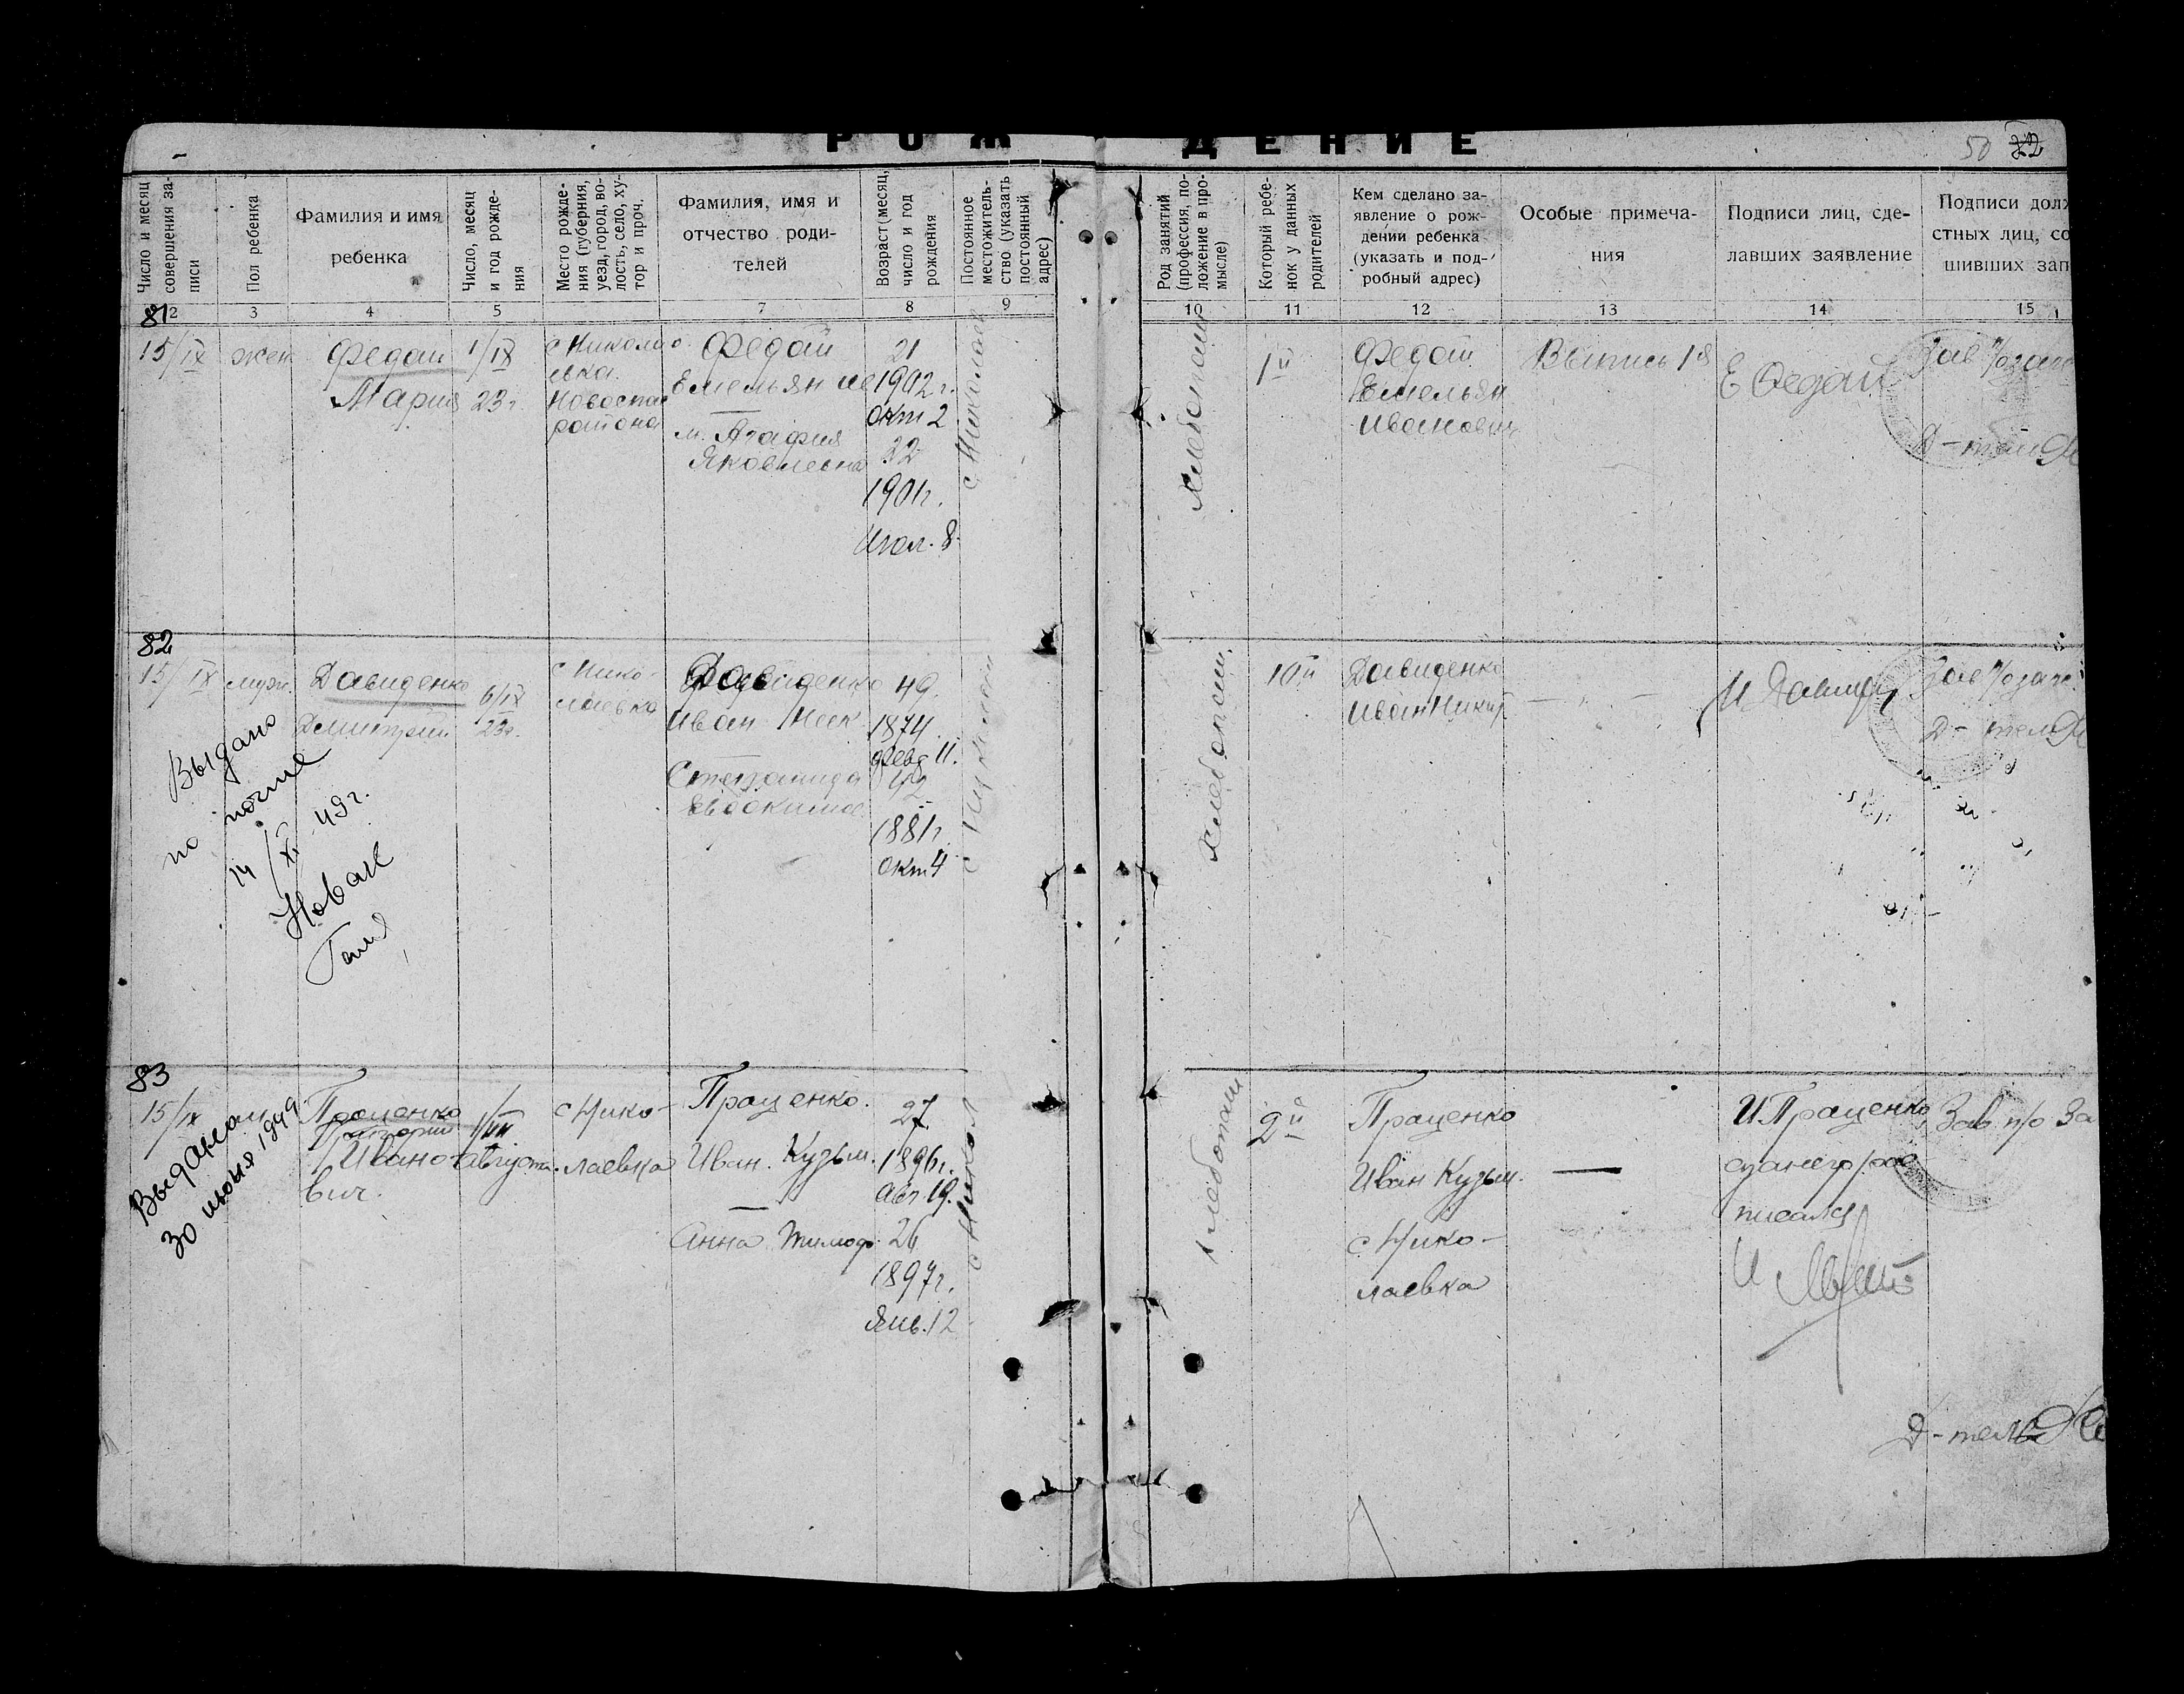 РОЖДЕНИЕ
50 22
Число и месяц совершения записи
Пол ребенка
Фамилия и имя
ребенка
Число, месяц и год рождения
Место рождения (губерния, уезд, город, волость, село, хутор и проч.
Фамилия, имя и
отчество роди-
телей
Возраст (месяц, число и год рождения
Постоянное местожительство (указать постоянный адрес)
Род занятий (профессия, положение в промысле)
Который ребенок у данных родителей
Кем сделано за-
явление о рож-
дении ребенка
(указать и под-
робный адрес)
Особые примеча-
ния
Подписи лиц, сде-
лавших заявление
Подписи долж
стных лиц, со
шивших зап
2 3 4 5 7 8 9 10 11 12 13 14 15
81
15/IX
жен
Федай
Мария
1/IX
23г.
с Николае
вка
района
Федай
Емельян
м. Агафия
Яковлевна
21
1902г.
окт 2
22
1901г.
Июл. 8
с Николаев
хлебопаш
1й
Федай
Емельян
Иванович
Выпись 18
Е Федай
82
15/IX
муж.
Давиденко
Дмитрий
6/IX
23г.
с Нико-
лаевка
Давиденко
Иван
Степанида
Евдоким
49
1874
февр 11.
42
1881г.
окт 4
хлебопаш.
10й
Давиденко
Иван Никит
Выдано
по почте
14/X 49г.
Новак
Галя
83
15/IX
Проценко
Григорий
Ивано-
вич.
1/VIII
августа.
с Нико-
лаевка
Проценко.
Иван. Кузьм.
Анна Тимоф.
27
1896г.
авг. 19.
26
1897г.
Янв. 12
с Никол
хлебопаш
2й
Проценко
Иван Кузьм.
с Нико-
лаевка
И Проценко
за него рас
писался
Зав п/о За
30 июня 1949